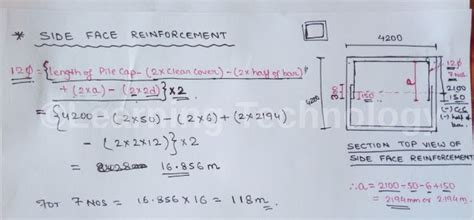 * SIDE FACE REINFORCEMENT
12Φ = {length of Pile Cap - (2x clean cover) - (2x half of bar)
+ (2xa) - (2x2d)} x 2
= {4200 - (2x50) - (2x6) + (2x2194)
- (2x2x12)} x 2
= 16.856 m
For 7 Nos = 16.856 x 16 = 118 m.
4200
12Φ
7 Nos.
2100
150
(-) C.C
(-) half of bar
4200
300
150
a
SECTION TOP VIEW OF
SIDE FACE REINFORCEMENT
∴ a = 2100-50-6+150
= 2194 mm or 2.194 m
©Learning Technology